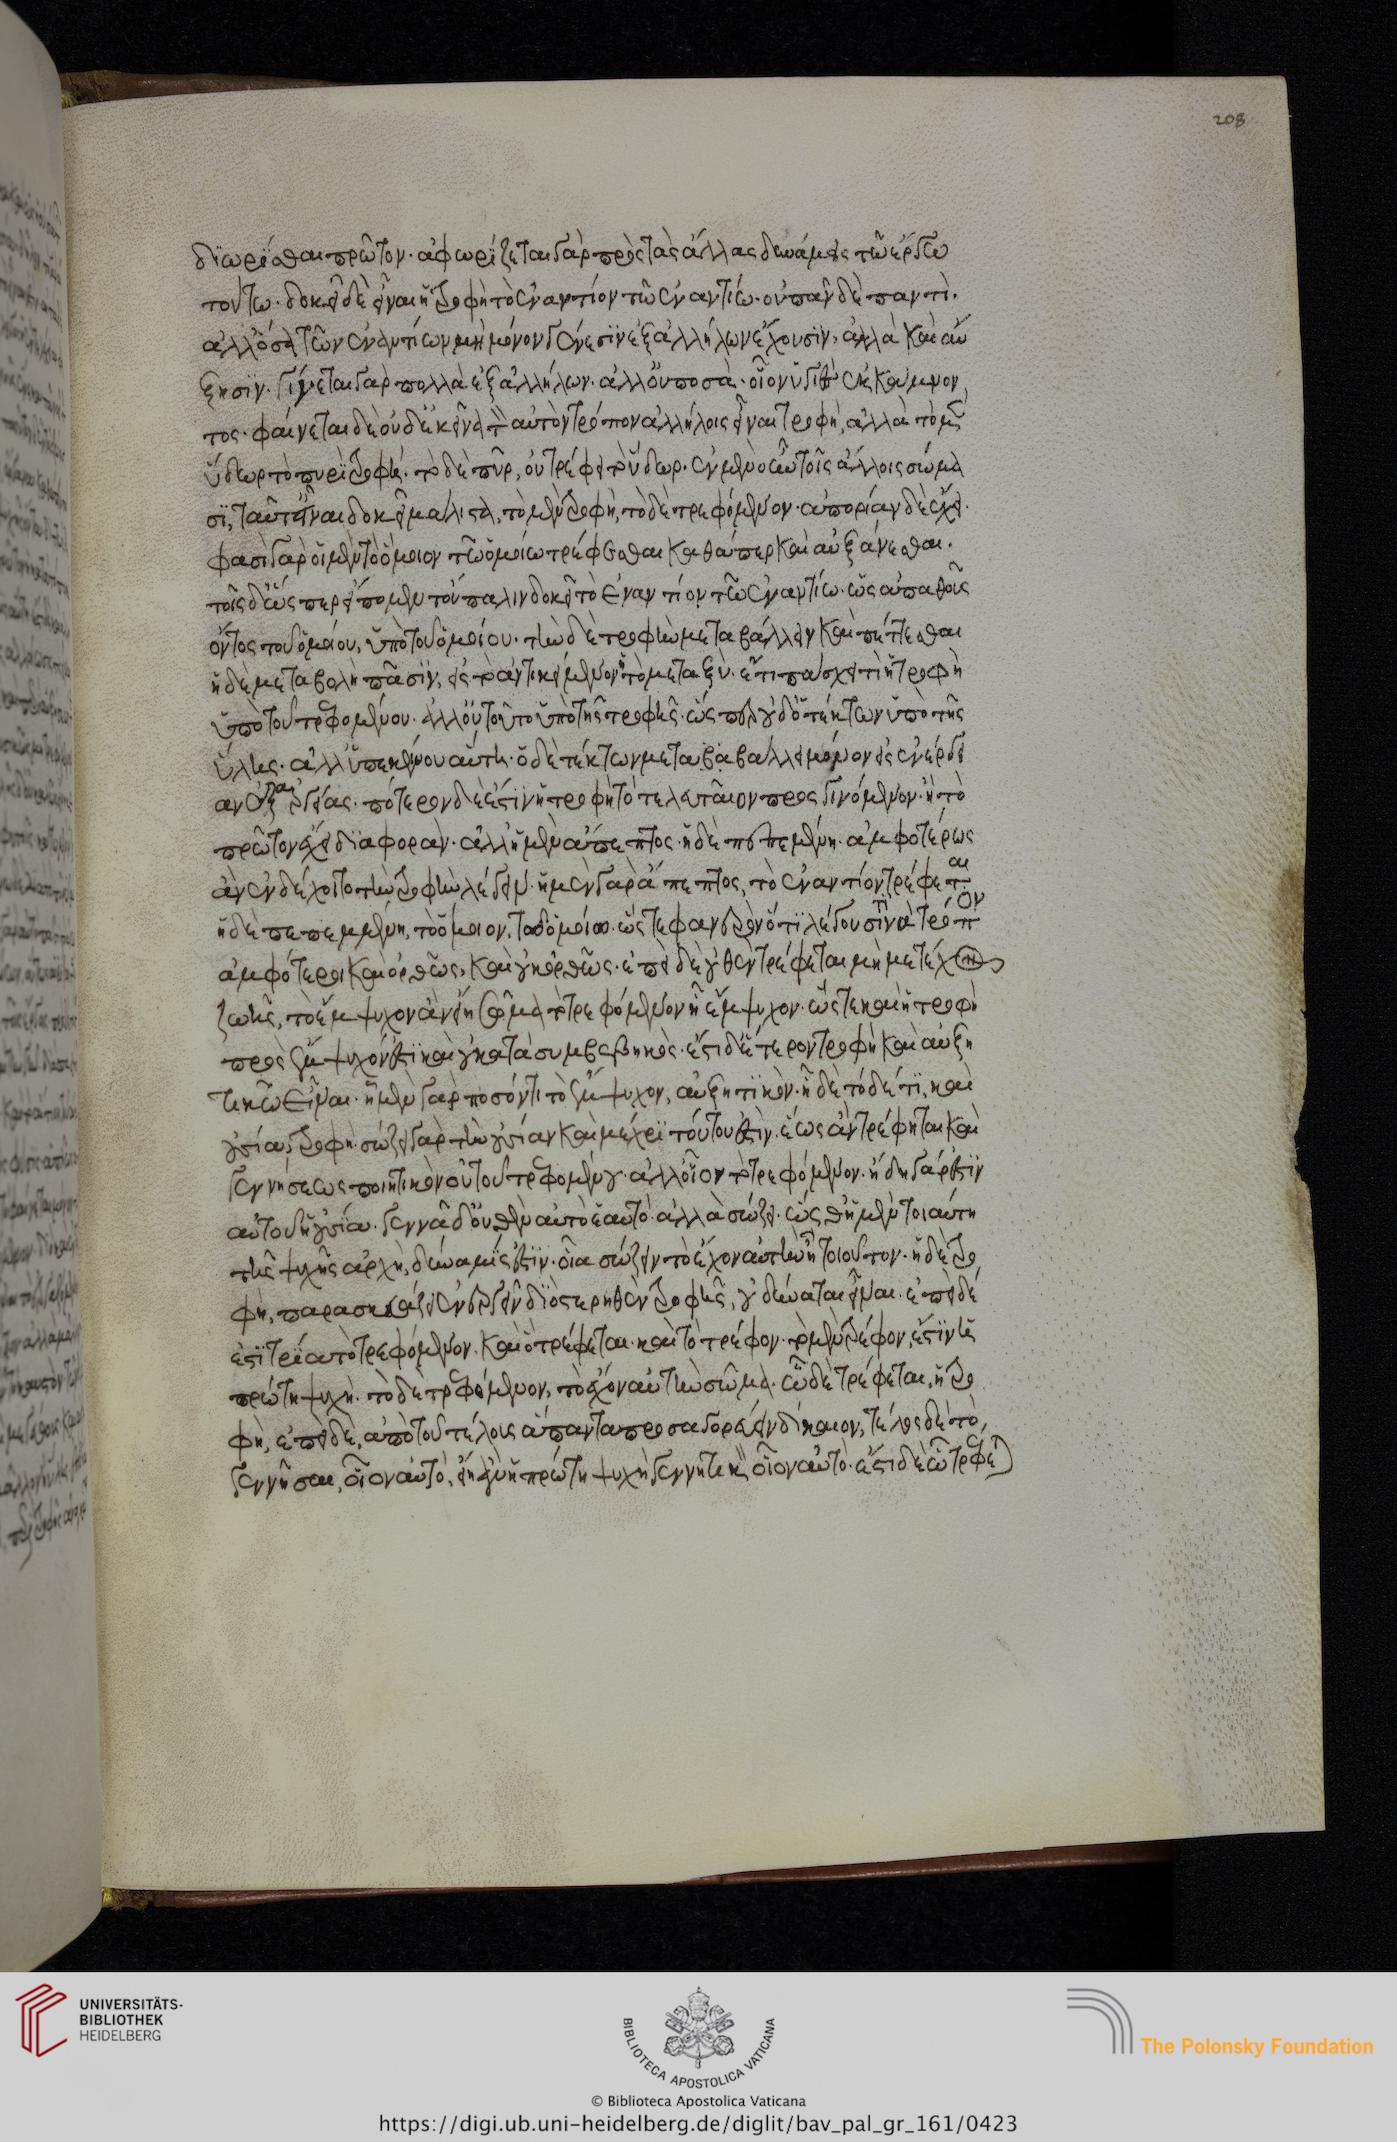 διωρίσθαι πρῶτον· ἀφωρίζεται γὰρ πρὸς τὰς ἄλλας δυνάμεις τῶ ἔργω
τούτω· δοκεῖ δὲ εἶναι ἡ τροφὴ τὸ ἐναντίον τῶ ἐναντίω· οὐ πᾶν δὲ παντὶ·
ἀλλ' ὅσα τῶν ἐναντίων μὴ μόνον γένεσιν ἐξ ἀλλήλων ἔχουσιν, ἀλλὰ καὶ αὔ
ξησιν· γίνεται γὰρ πολλὰ ἐξ ἀλλήλων· ἀλλ' οὐ ποσὰ· οἷον ὑγιὲς ἐκ κάμνον
τος· φαίνεται δὲ οὐδ' ἐκεῖνα τὸν αὐτὸν τρόπον ἀλλήλοις εἶναι τροφὴ, ἀλλὰ τὸ μὲν
ὕδωρ τὸ πυρὶ τροφή· τὸ δὲ πῦρ, οὐ τρέφει τὸ ὕδωρ· ἐν μὲν οὖν τοῖς ἄλλοις σώμα
σι, ταῦτ' εἶναι δοκεῖ μάλιστα, τὸ μὲν τροφὴ, τὸ δὲ τρεφόμενον· ἀπορίαν δὲ ἔχει·
φασὶ γὰρ οἱ μὲν τὸ ὅμοιον τῶ ὁμοίω τρέφεσθαι καθάπερ καὶ αὐξάνεσθαι·
τοῖς δ' ὥσπερ εἴπομεν τοὔπαλιν δοκεῖ τὸ ἐναντίον τῶ ἐναντίω· ὡς ἀπαθοῦς
ὄντος τοῦ ὁμοίου, ὑπὸ τοῦ ὁμοίου· τὴν δὲ τροφὴν μεταβάλλειν καὶ πέττεσθαι
ἡ δὲ μεταβολὴ πᾶσιν, εἰς τὸ ἀντικείμενον ἢ τὸ μεταξὺ· ἔτι πάσχει τὶ ἡ τροφὴ
ὑπὸ τοῦ τρεφομένου· ἀλλ' οὐ τοῦτο ὑπὸ τῆς τροφῆς· ὥσπερ οὐδ' ὁ τέκτων ὑπὸ τῆς
ὕλης· ἀλλ' ὑπ' ἐκείνου αὕτη· ὁ δὲ τέκτων μεταβαβάλλει μόνον εἰς ἐνέργει
αν ἐξ ἀργείας· πότερον δὲ ἐστὶν ἡ τροφὴ τὸ τελευταῖον προσγινόμενον· ἢ τὸ
πρῶτον ἔχει διαφορὰν· ἀλλ' ἡ μὲν ἄπεπτος· ἡ δὲ πεπεμμένη· ἀμφοτέρως
ἂν ἐνδέχοιτο τὴν τροφὴν λέγειν· ἡ μὲν γὰρ ἄπεπτος, τὸ ἐναντίον τρέφεται
ἡ δὲ πεπεμμένη, τὸ ὅμοιον, τῶ ὁμοίω· ὥστε φανερὸν ὅτι λέγουσί τινα τρόπον
ἀμφότεροι καὶ ὀρθῶς, καὶ οὐκ ὀρθῶς· ἐπεὶ δὲ οὐθὲν τρέφεται μὴ μετέχον
ζωῆς, τὸ ἔμψυχον ἂν εἴη σῶμα τὸ τρεφόμενον ἧ ἔμψυχον· ὥστε καὶ ἡ τροφὴ
πρὸς ἔμψυχόν ἐστι καὶ οὐ κατὰ συμβεβηκὸς· ἔστι δ' ἕτερον τροφὴ καὶ αὐξη
τικῶ εἶναι· ἧ μὲν γὰρ ποσόν τι τὸ ἔμψυχον, αὐξητικὸν· ἧ δὲ τόδε τὶ, καὶ
οὐσία, τροφὴ· σώζει γὰρ τὴν οὐσίαν καὶ μέχρι τούτου ἐστὶν· ἕως ἂν τρέφηται καὶ
γεννήσεως ποιητικὸν οὐ τοῦ τρεφομένου· ἀλλ' οἷον τὸ τρεφόμενον· ἤδη γάρ ἐστιν
αὐτοῦ ἡ οὐσία· γεννᾶ δ' οὐθὲν αὐτὸ ἑαυτὸ· ἀλλὰ σώζει· ὥσθ' ἡ μὲν τοιαύτη
τῆς ψυχῆς ἀρχὴ, δύναμίς ἐστιν· οἵα σώζειν τὸ ἔχον αὐτὴν ἧ τοιοῦτον· ἡ δὲ τρο
φὴ, παρασκευάζει ἐνεργεῖν διὸ στερηθὲν τροφῆς, οὐ δύναται εἶναι· ἐπεὶ δέ
ἐστι τρία τὸ τρεφόμενον, καὶ ὃ τρέφεται· καὶ τὸ τρέφον· τὸ μὲν τρέφον, ἐστὶν ἡ
πρώτη ψυχὴ· τὸ δὲ τρεφόμενον, τὸ ἔχον αὐτὴν σῶμα· ὧ δὲ τρέφεται, ἡ τρο
φὴ, ἐπεὶ δὲ, ἀπὸ τοῦ τέλους ἅπαντα προσαγορεύειν δίκαιον, τέλος δὲ τὸ
γεννῆσαι, οἷον αὐτὸ, εἴη ἂν ἡ πρώτη ψυχὴ γεννητικὴ οἷον αὐτὸ· ἔστι δὲ ὧ τρέφει
208
UNIVERSITÄTS-
BIBLIOTHEK
HEIDELBERG
BIBLIOTECA APOSTOLICA VATICANA
The Polonsky Foundation
© Biblioteca Apostolica Vaticana
https://digi.ub.uni-heidelberg.de/diglit/bav_pal_gr_161/0423